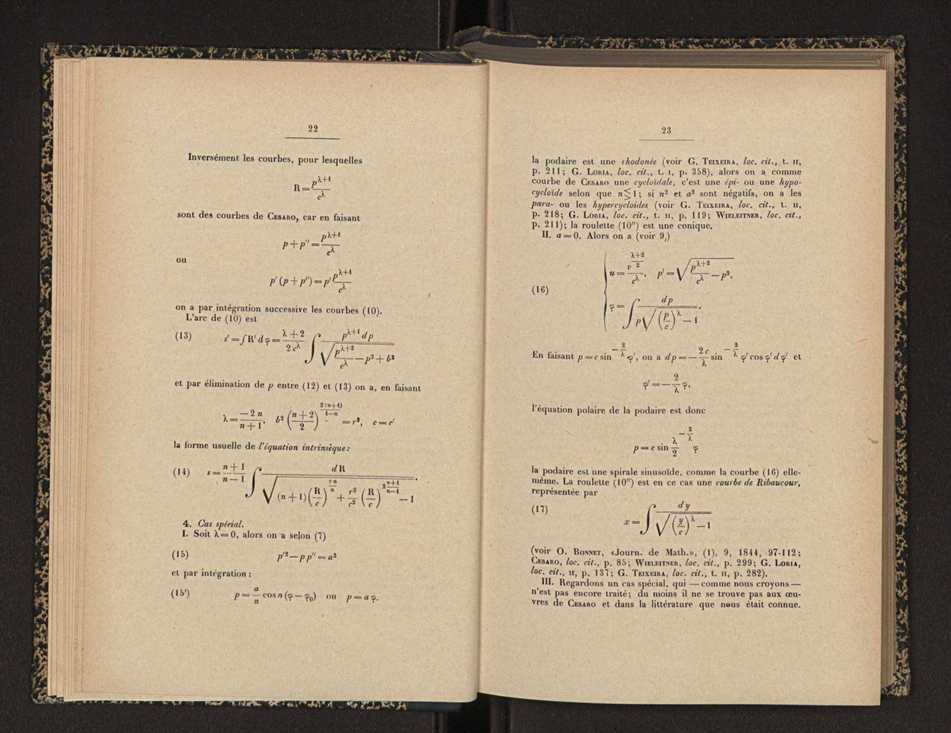 22
Inversément les courbes, pour lesquelles
R = p^{λ+1} / c^λ
sont des courbes de CESARO, car en faisant
p + p'' = p^{λ+1} / c^λ
ou
p' (p + p'') = p' p^{λ+1} / c^λ
on a par intégration successive les courbes (10).
L'arc de (10) est
(13) s' = ∫ R' dφ = (λ+2)/(2c^λ) ∫ p^{λ+1} dp / √(p^{λ+2}/c^λ − p² + b²)
et par élimination de p entre (12) et (13) on a, en faisant
λ = −2n/(n+1), b² ((n+2)/2)^{2(n+1)/(1−n)} = r², c = c'
la forme usuelle de l'équation intrinsèque:
(14) s = (n+1)/(n−1) ∫ dR / √((n+1)(R/c) + r²/c² (R/c)^{2(n+1)/(n−1)} − 1) .
4. Cas spécial.
I. Soit λ = 0, alors on a selon (7)
(15) p'² − p p'' = a²
et par intégration:
(15') p = a/n cos n (φ − φ₀) ou p = a φ.
23
la podaire est une rhodonée (voir G. TEIXEIRA, loc. cit., t. II,
p. 211; G. LORIA, loc. cit., t. I, p. 358), alors on a comme
courbe de CESARO une cycloïdale, c'est une épi- ou une hypo-
cycloïde selon que n ≶ 1; si n² et a² sont négatifs, on a les
para- ou les hypercycloïdes (voir G. TEIXEIRA, loc. cit., t. II,
p. 218; G. LORIA, loc. cit., t. II, p. 119; WIELEITNER, loc. cit.,
p. 211); la roulette (10'') est une conique.
II. a = 0. Alors on a (voir 9,)
u = p^{(λ+2)/2} / c^λ, p' = √(p^{λ+2}/c^λ − p².
(16)
φ = ∫ dp / p√((p/c)^λ − 1) .
En faisant p = c sin^{−2/λ} φ', on a dp = − 2c/λ sin^{−2/λ} φ' cos φ' dφ' et
φ' = − 2/λ φ,
l'équation polaire de la podaire est donc
p = c sin^{−2/λ} λ/2 φ
la podaire est une spirale sinusoïde, comme la courbe (16) elle-
même. La roulette (10'') est en ce cas une courbe de Ribaucour,
représentée par
(17) x = ∫ dy / √((y/c)^λ − 1)
(voir O. BONNET, «Journ. de Math.», (1), 9, 1844, 97-112;
CESARO, loc. cit., p. 85; WIELEITNER, loc. cit., p. 299; G. LORIA,
loc. cit., II, p. 137; G. TEIXEIRA, loc. cit., t. II, p. 282).
III. Regardons un cas spécial, qui — comme nous croyons —
n'est pas encore traité; du moins il ne se trouve pas aux œu-
vres de CESARO et dans la littérature que nous était connue.